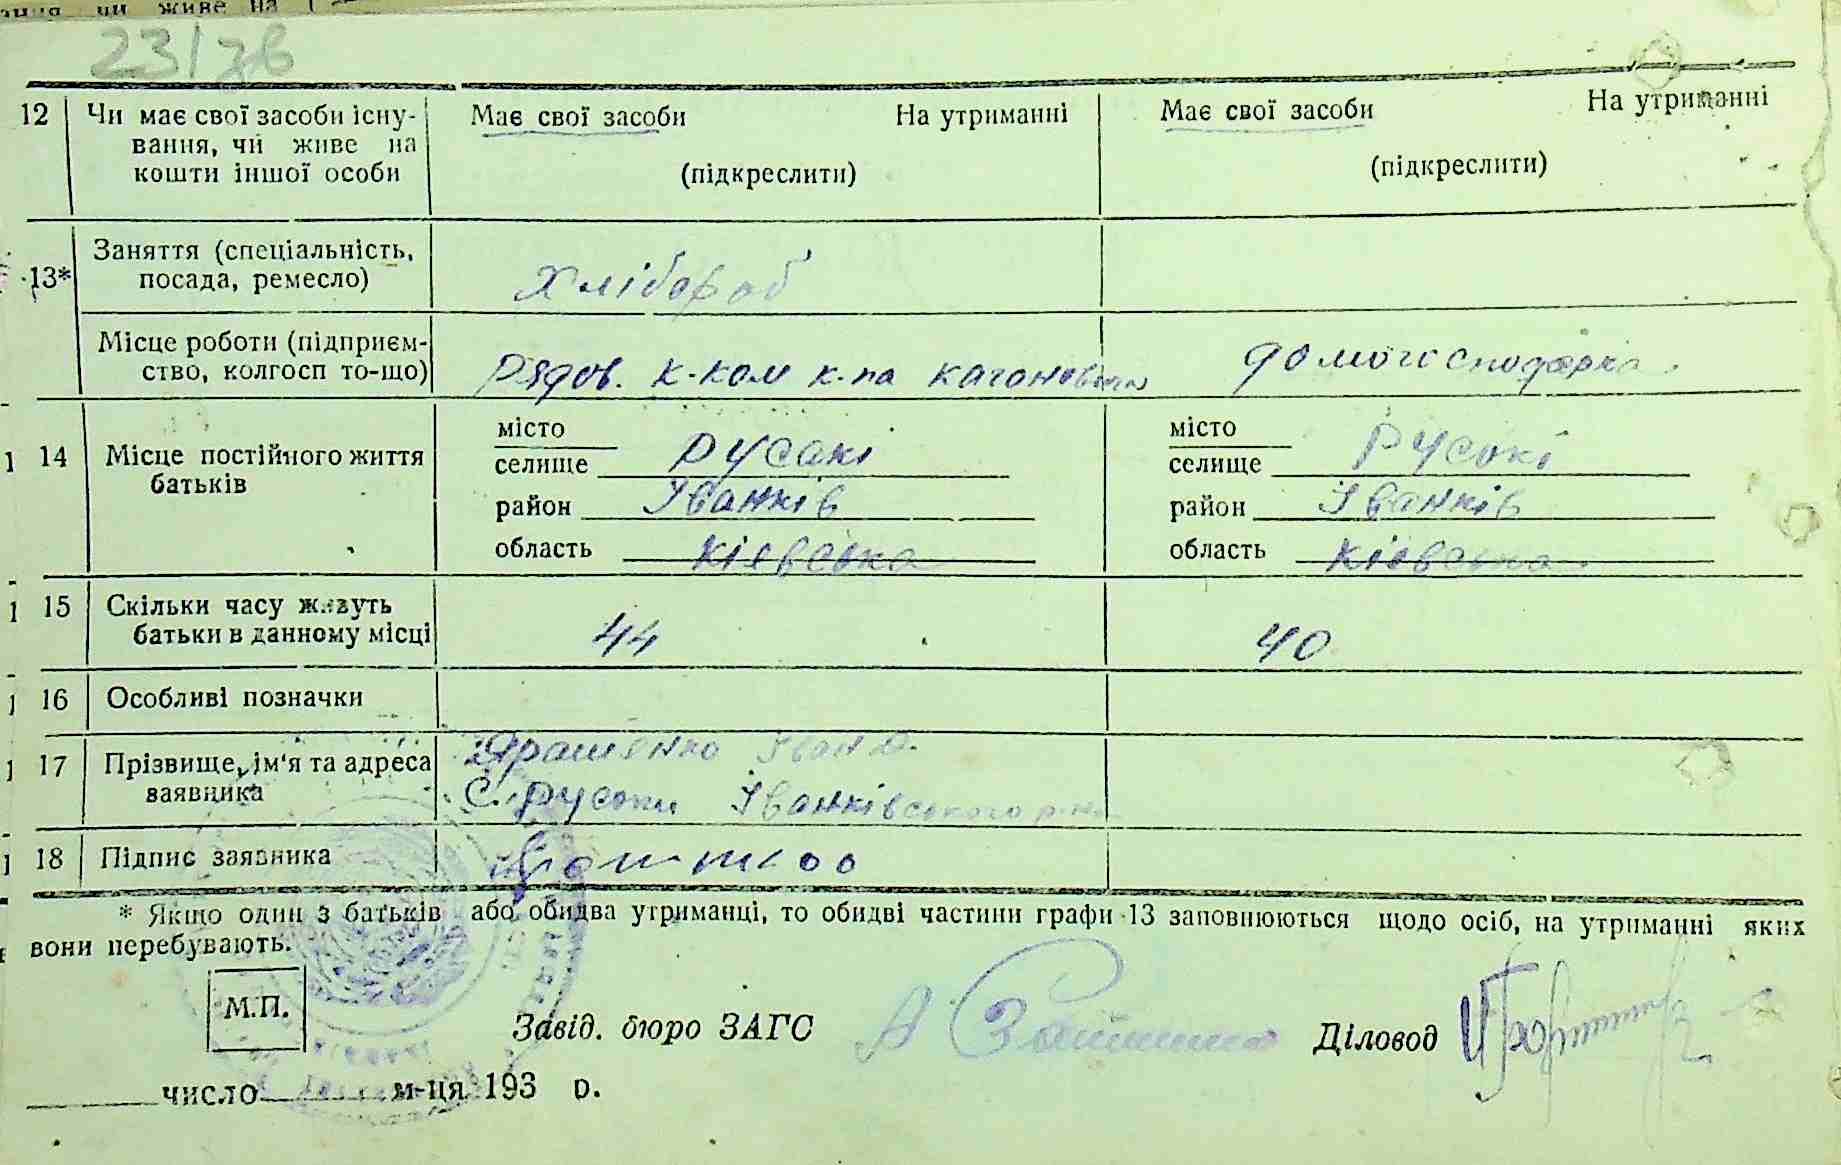 чи живе на
23/зв
12 Чи має свої засоби існу-
вання, чи живе на
кошти іншої особи
Має свої засоби На утриманні
(підкреслити)
Має свої засоби На утриманні
(підкреслити)
13* Заняття (спеціальність,
посада, ремесло)
Хлібороб
Місце роботи (підприєм-
ство, колгосп то-що)
Рядов. к-ком к-па кагановича
домогосподарка
14 Місце постійного життя
батьків
місто
селище Русакі
район Іванків
область Кієвська
місто
селище Русокі
район Іванків
область Кієвська
15 Скільки часу живуть
батьки в данному місці
44
40
16 Особливі позначки
17 Прізвище, ім'я та адреса
заявника
Ярашенко Іван
С. Русоки Іванківського р-на
18 Підпис заявника
* Якщо один з батьків або обидва утриманці, то обидві частини графи 13 заповнюються щодо осіб, на утриманні яких
вони перебувають.
М.П.
Завід. бюро ЗАГС
Діловод
число м-ця 193 р.